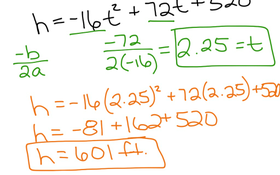 h = -16t² + 72t + 520
-b/2a -72/2(-16) 2.25 = t
h = -16(2.25)² + 72(2.25) + 520
h = -81 + 162 + 520
h = 601 ft.